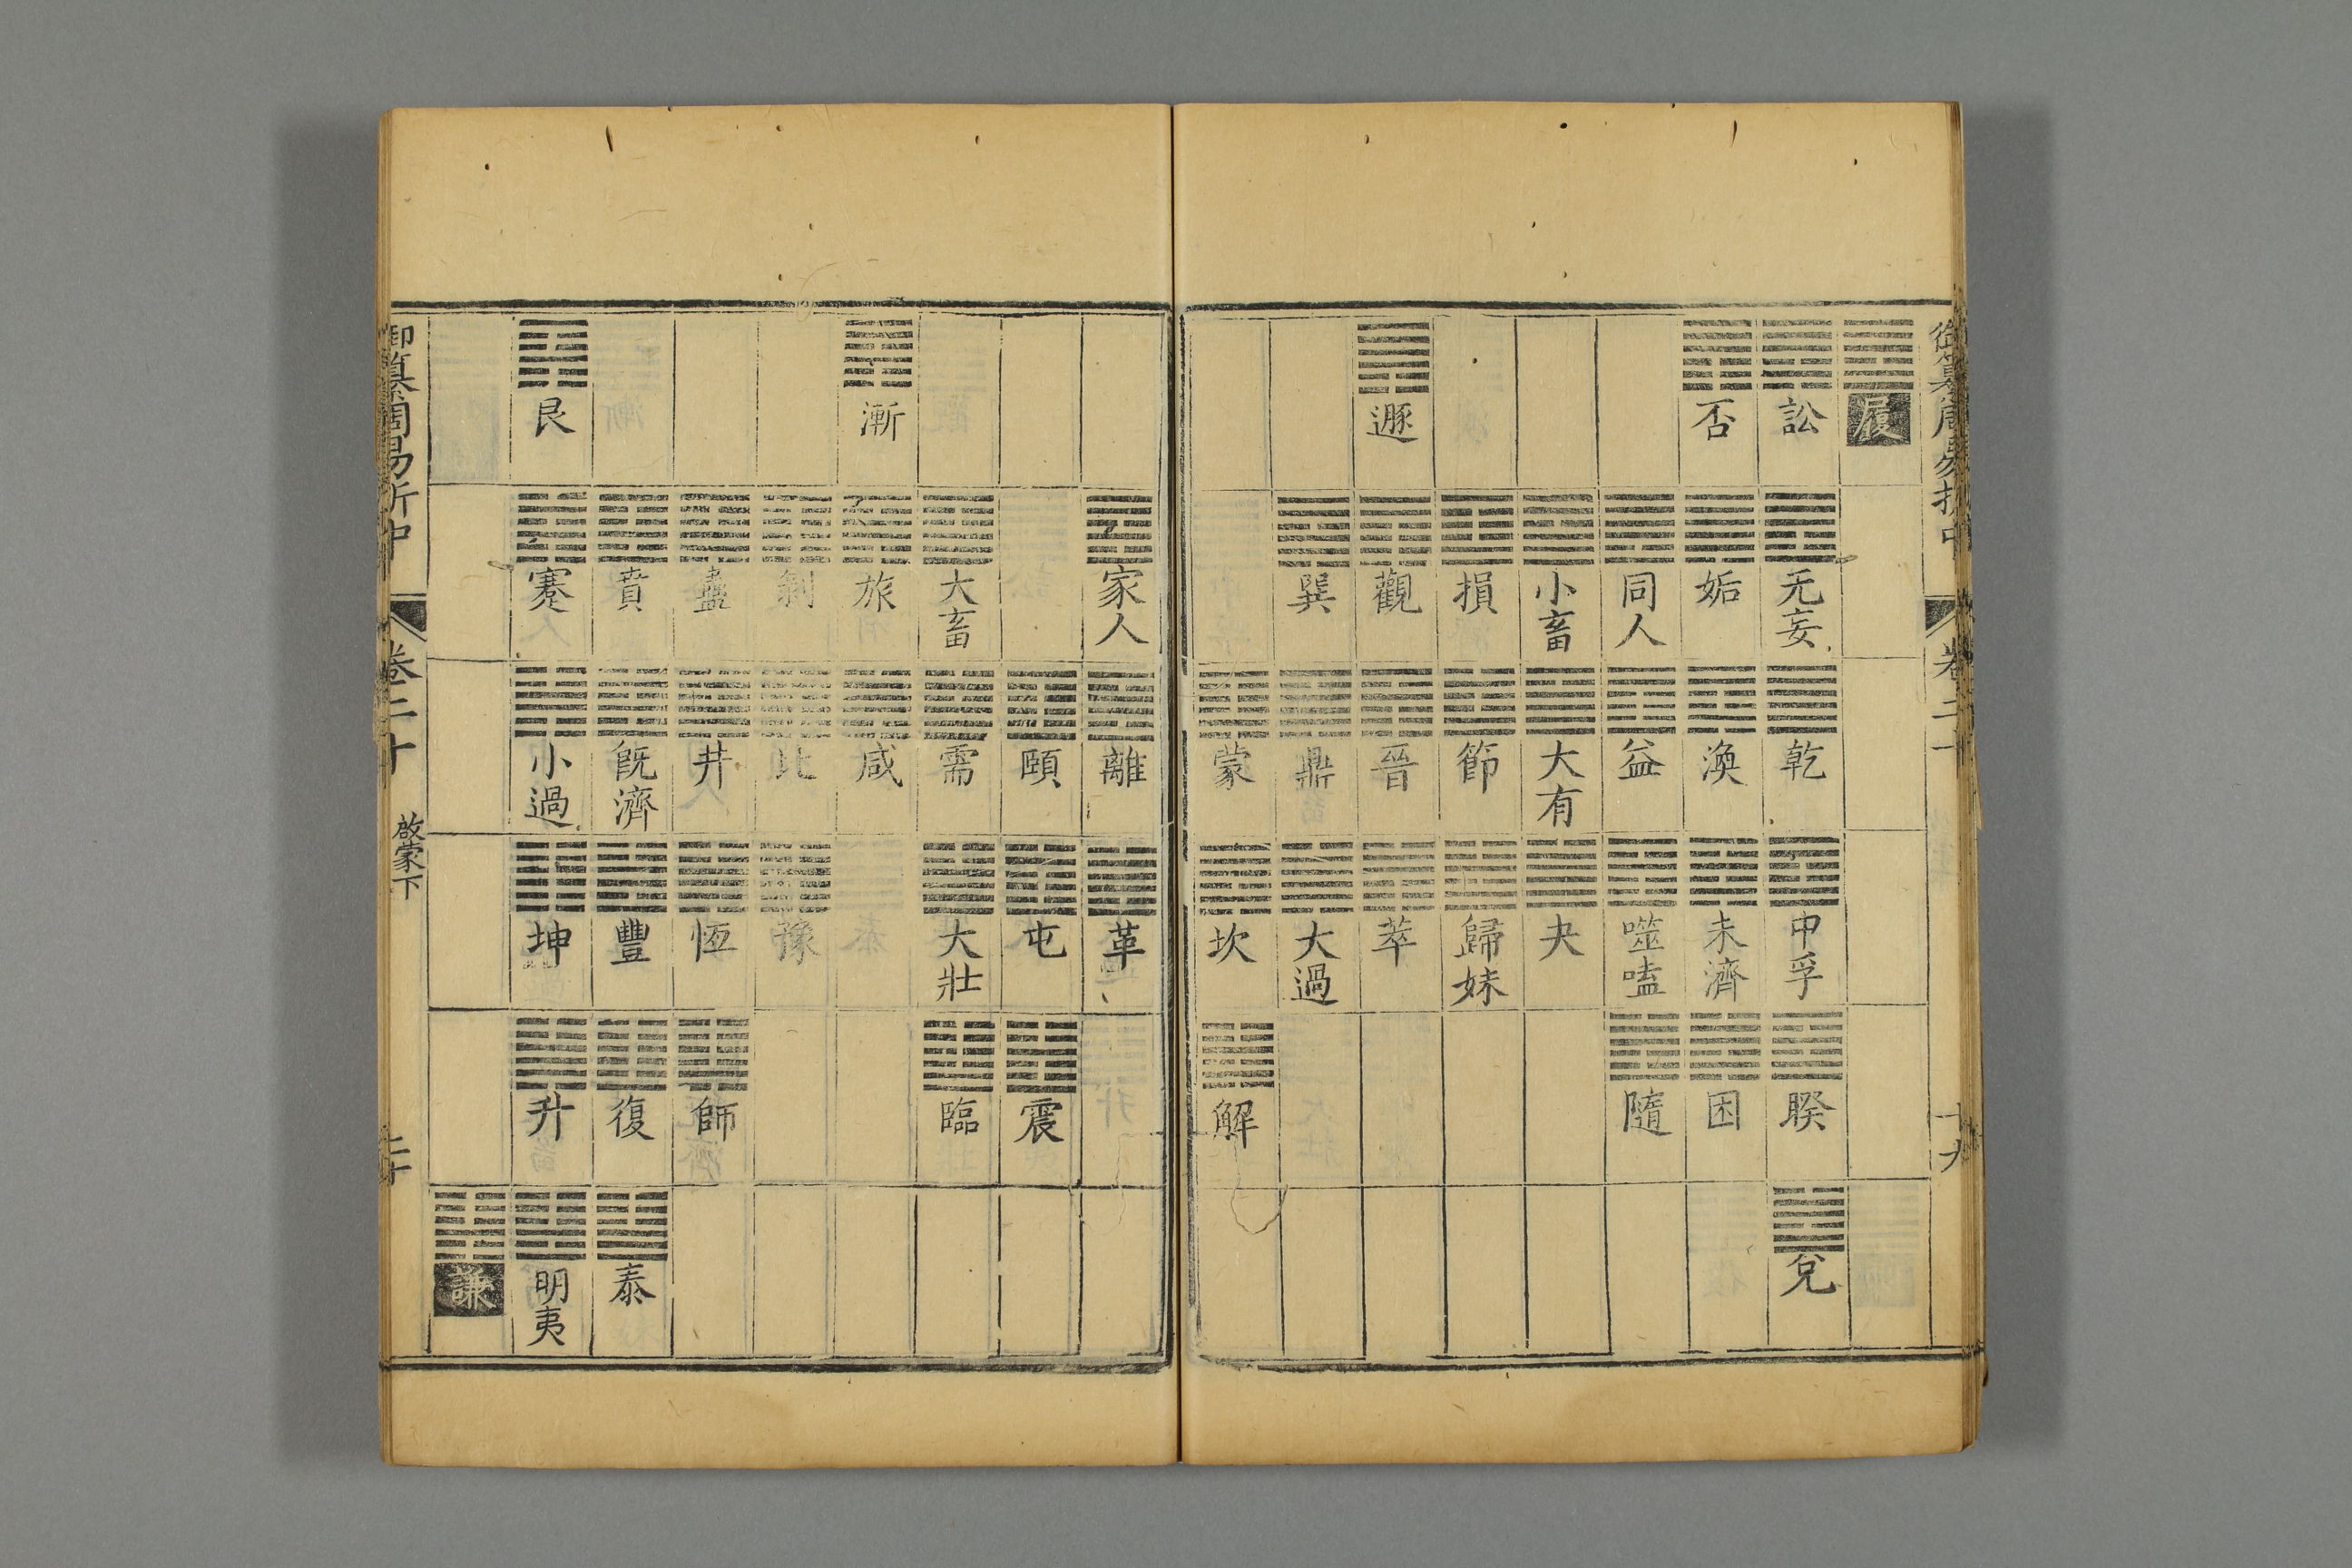 御纂周易折中 卷二十 十九
履
訟 无妄 乾 中孚 睽 兌
否 姤 渙 未濟 困
同人 益 噬嗑 隨
小畜 大有 夬
損 節 歸妹
遯 觀 晉 萃
巽 鼎 大過
蒙 坎 解
家人 離 革
頤 屯 震
大畜 需 大壯 臨
漸 旅 咸
剝 比 豫
蠱 井 恆 師
賁 旣濟 豐 復 泰
艮 蹇 小過 坤 升 明夷
謙
御纂周易折中 卷二十 啟蒙下 二十